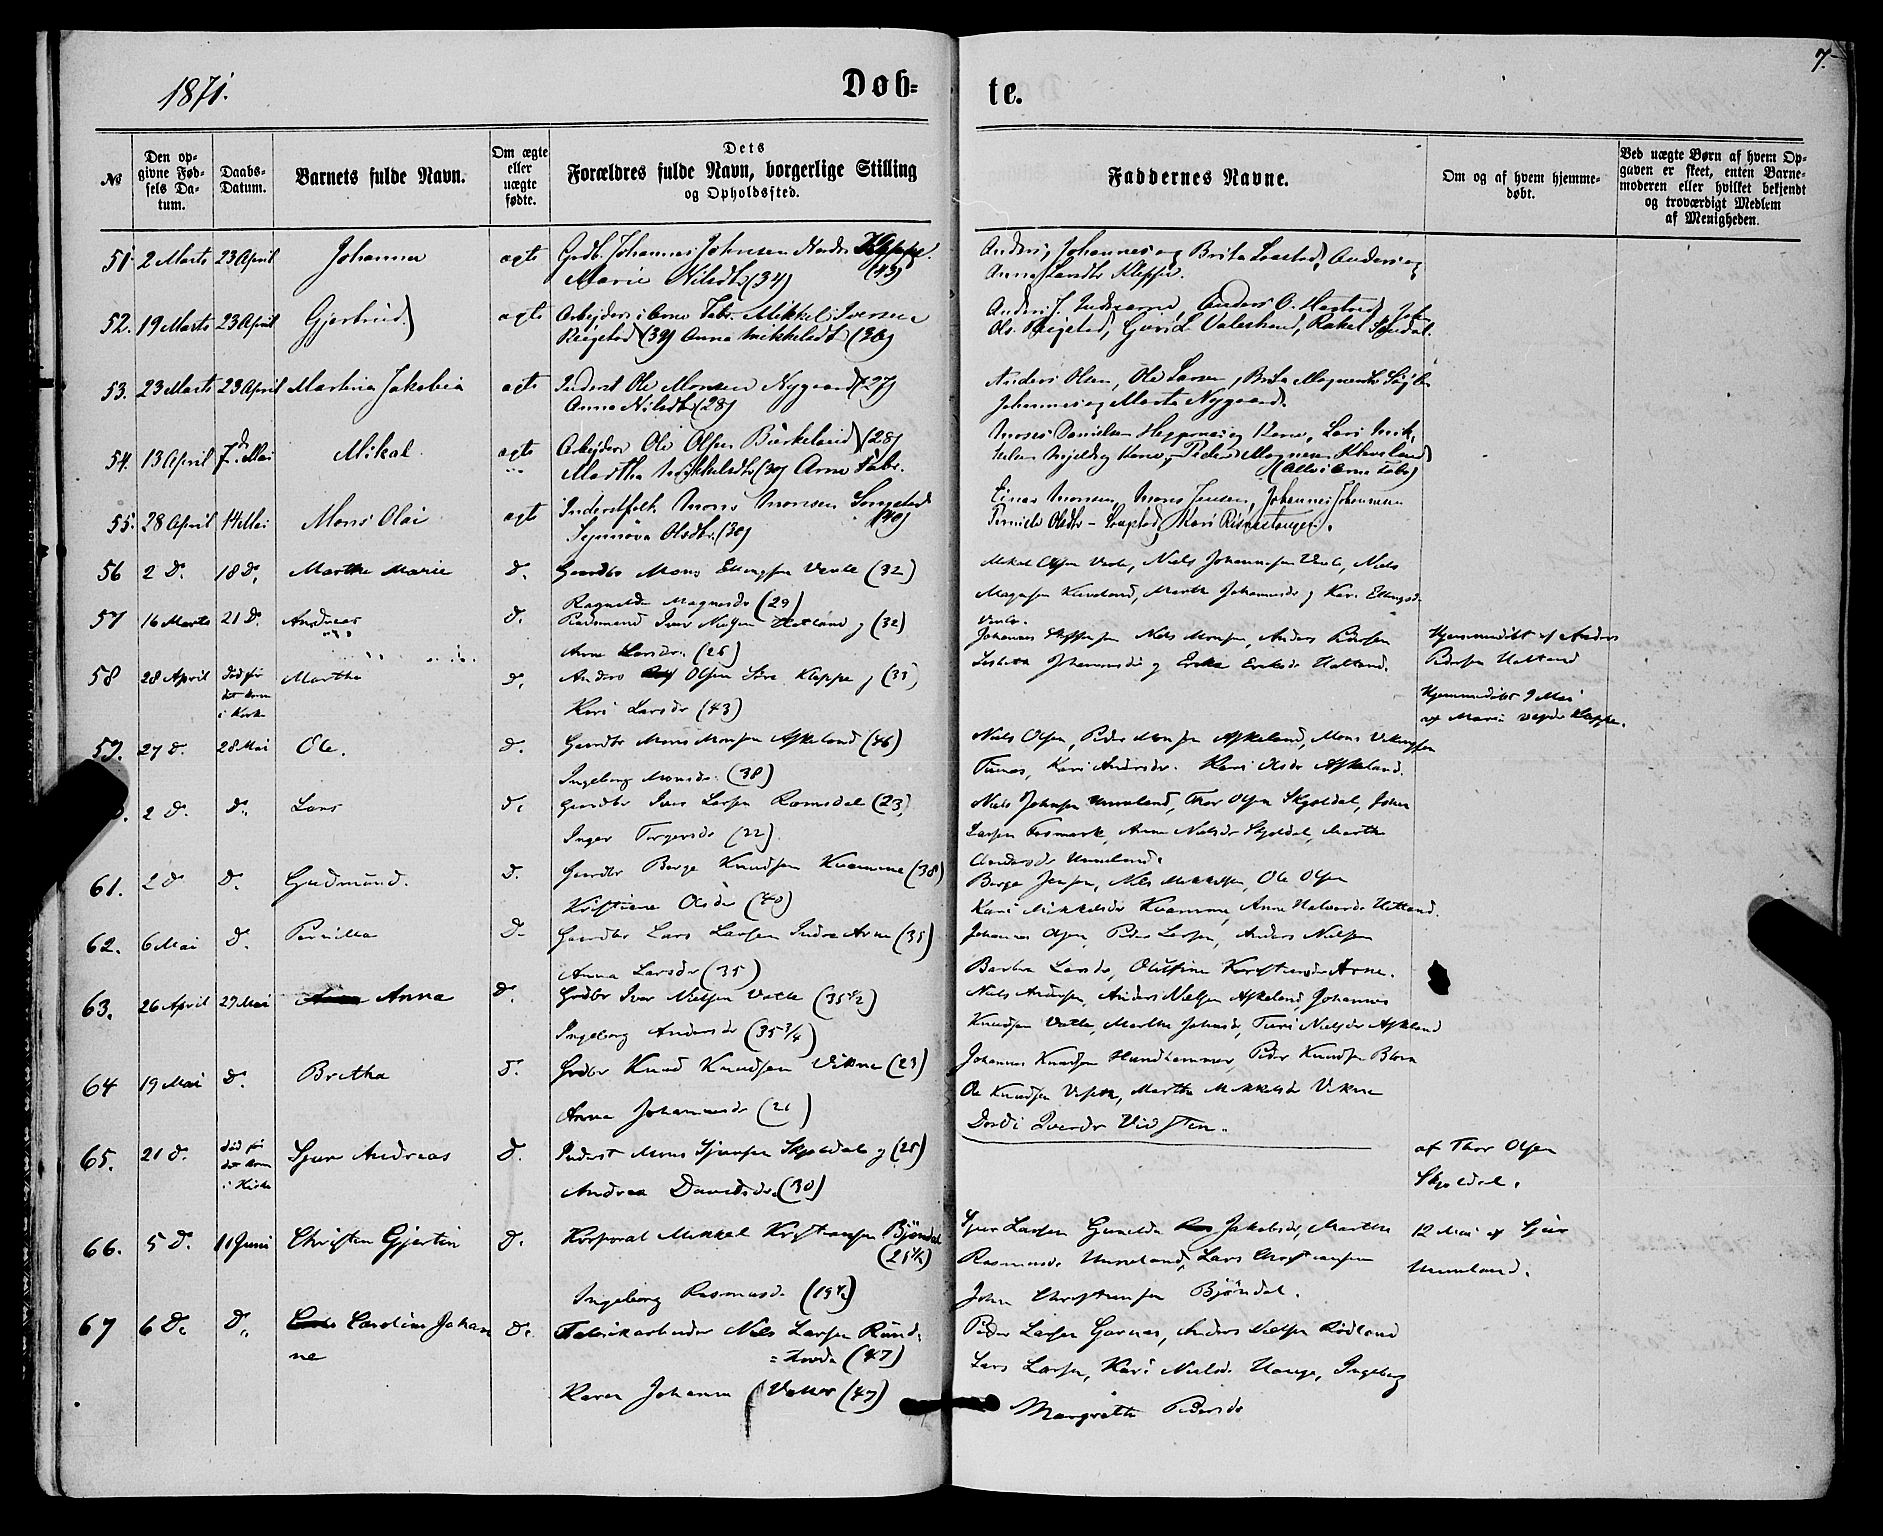 1871.
Døb=
te.
7.
№
Den opgivne Fødsels Datum.
Daabs-Datum.
Barnets fulde Navn.
Om ægte eller uægte fødte.
Dets
Forældres fulde Navn, borgerlige Stilling
og Opholdssted.
Faddernes Navne.
Om og af hvem hjemmedøbt.
Ved uægte Børn af hvem Opgaven er skeet, enten Barnemoderen eller hvilket bekjendt og troværdigt Medlem af Menigheden.
51. 2 Marts 23 April Johanna ægte Grdb. Johannes Johnsen Nordre Kleppe (43)
Marie Nilsdtr (34)
Anders, Johannes og Brita
Anna Larsdtr Kleppe.
52. 19 Marts 23 April Gjertrud ægte Arbejder i Arne Fabr. Mikkel Iversen
(39) Anna Mikkelsdt (36)
53. 23 Marts 23 April Martina Jakobia ægte Inderst Ole Monsen Nygaard (27)
Anna Nilsdtr (28)
Anders Olsen, Ole Larsen, Brita Magnesdtr
Johannes og Marta Nygaard.
54. 13 April 7d. Mai Mikal ægte Arbejder Ole Olsen Birkeland (28)
Martha Mikkelsdtr (30) Arne Fabr.
(Alle i Arne Fabr.)
55. 28 April 14 Mai Mons Olai ægte Inderstfolk Mons Monsen (40)
Synnøva Olsdtr. (30)
Einar Monsen, Mons Jensen, Johannes Johannesen
56 2 D. 18 D. Marthe Marie D. Gaardbr Mons Ellingsen Veale (32)
Ragnilda Magnesdr (29)
Mikal Olsen Veale, Niels Johannesen Veale, Niels
Magnesen Kaveland, Marthe Johannesdr og Kari Ellingsdr
57 16 Marts 21 D. Andreas D. Pladsmand Iver Nielsen Hatland og (32)
Anna Larsdr. (26)
Johannes Steffensen Niels Monsen, Anders Pedersen
Johannesdr og Eriksdr Hatland.
Hjemmedøbt af Anders
Pedersen Hatland
58 28 April død før det kom i Kirke Martha D. Anders Olsen Søre Kleppe og (33)
Kari Larsdr (43)
Hjemmedøbt 9 Mai
af Maria Kleppe.
59. 27 D. 28 Mai Ole. D. Gaardbr Mons Monsen Askeland (46)
Ingeborg Monsdr. (38)
Niels Olsen, Peder Monsen Askeland, Mons Vikingsen
Tunes, Kari Andersdr. Kari Olsdr Askeland.
2 D. D. Lars D. Gaardbr Iver Larsen Ramsdal (23)
Inger Torgersdr (22)
Niels Johnsen Unneland, Thor Olsen Skjoldal, Johan
Larsen Fosmark, Anna Nielsdr Skjoldal, Marthe
Andersdr Unneland.
61. 2 D D. Gudmund. D. Gaardbr Børge Knudsen Kvamme (38)
Kristiane Olsdr (40)
Børge Jensen, Nils Mikkelsen, Ole Olsen
Kari Mikkelsdr Kvamme, Anna Halvorsdr Hetland.
62. 6 Mai D. Pernilla D. Gaardbr Lars Larsen Indre Arne (35)
Anna Larsdr (35)
Johannes Olsen, Peder Larsen, Anders Nielsen
Barbra Larsdr, Olufine Kristiansdr Arne.
63. 26 April 29 Mai Anna D. Grdbr Iver Nielsen Vatle (35 1/2)
Ingeborg Andersdr (35 3/4)
Niels Andersen, Anders Nielsen Askeland, Johannes
Knudsen Vatle, Marthe Johnsdr, Turi Nielsdr Askeland
64 19 Mai D. Bretha D. Grdbr Knud Knudsen Vikne (23)
Anna Johannesdr (21)
Johannes Knudsen Hundhammer, Peder Knudsen
Ole Knudsen Marthe Mikkelsdr Vikne
Dordi Iversdr Vidsten.
65. 21 D. død før det kom i Kirke Sjur Andreas D. Inderst Mons Sjursen Skjoldal og (25)
Andrea Davidsdr. (30)
af Thor Olsen
Skjoldal.
66. 5 D. 11 Juni Christen Gjertin D. Korporal Mikkel Kristiansen Bjøndal (25 1/2)
Ingeborg Rasmusdr (19 1/2)
Sjur Larsen Gunilda Jakobsdr, Marthe
Rasmusdr Unneland, Lars Christiansen
John Christiansen Bjøndal.
12 Mai af Sjur
Unneland.
67 6 D. D. Caroline Johanne D. Fabrikarbeider Niels Larsen Rund=
=hovde (47)
Karen Johanna (47)
Peder Larsen Garnes, Anders Nielsen Rødland
Lars Larsen, Kari Nielsdr Hauge, Ingeborg
Margrethe Pedersdr